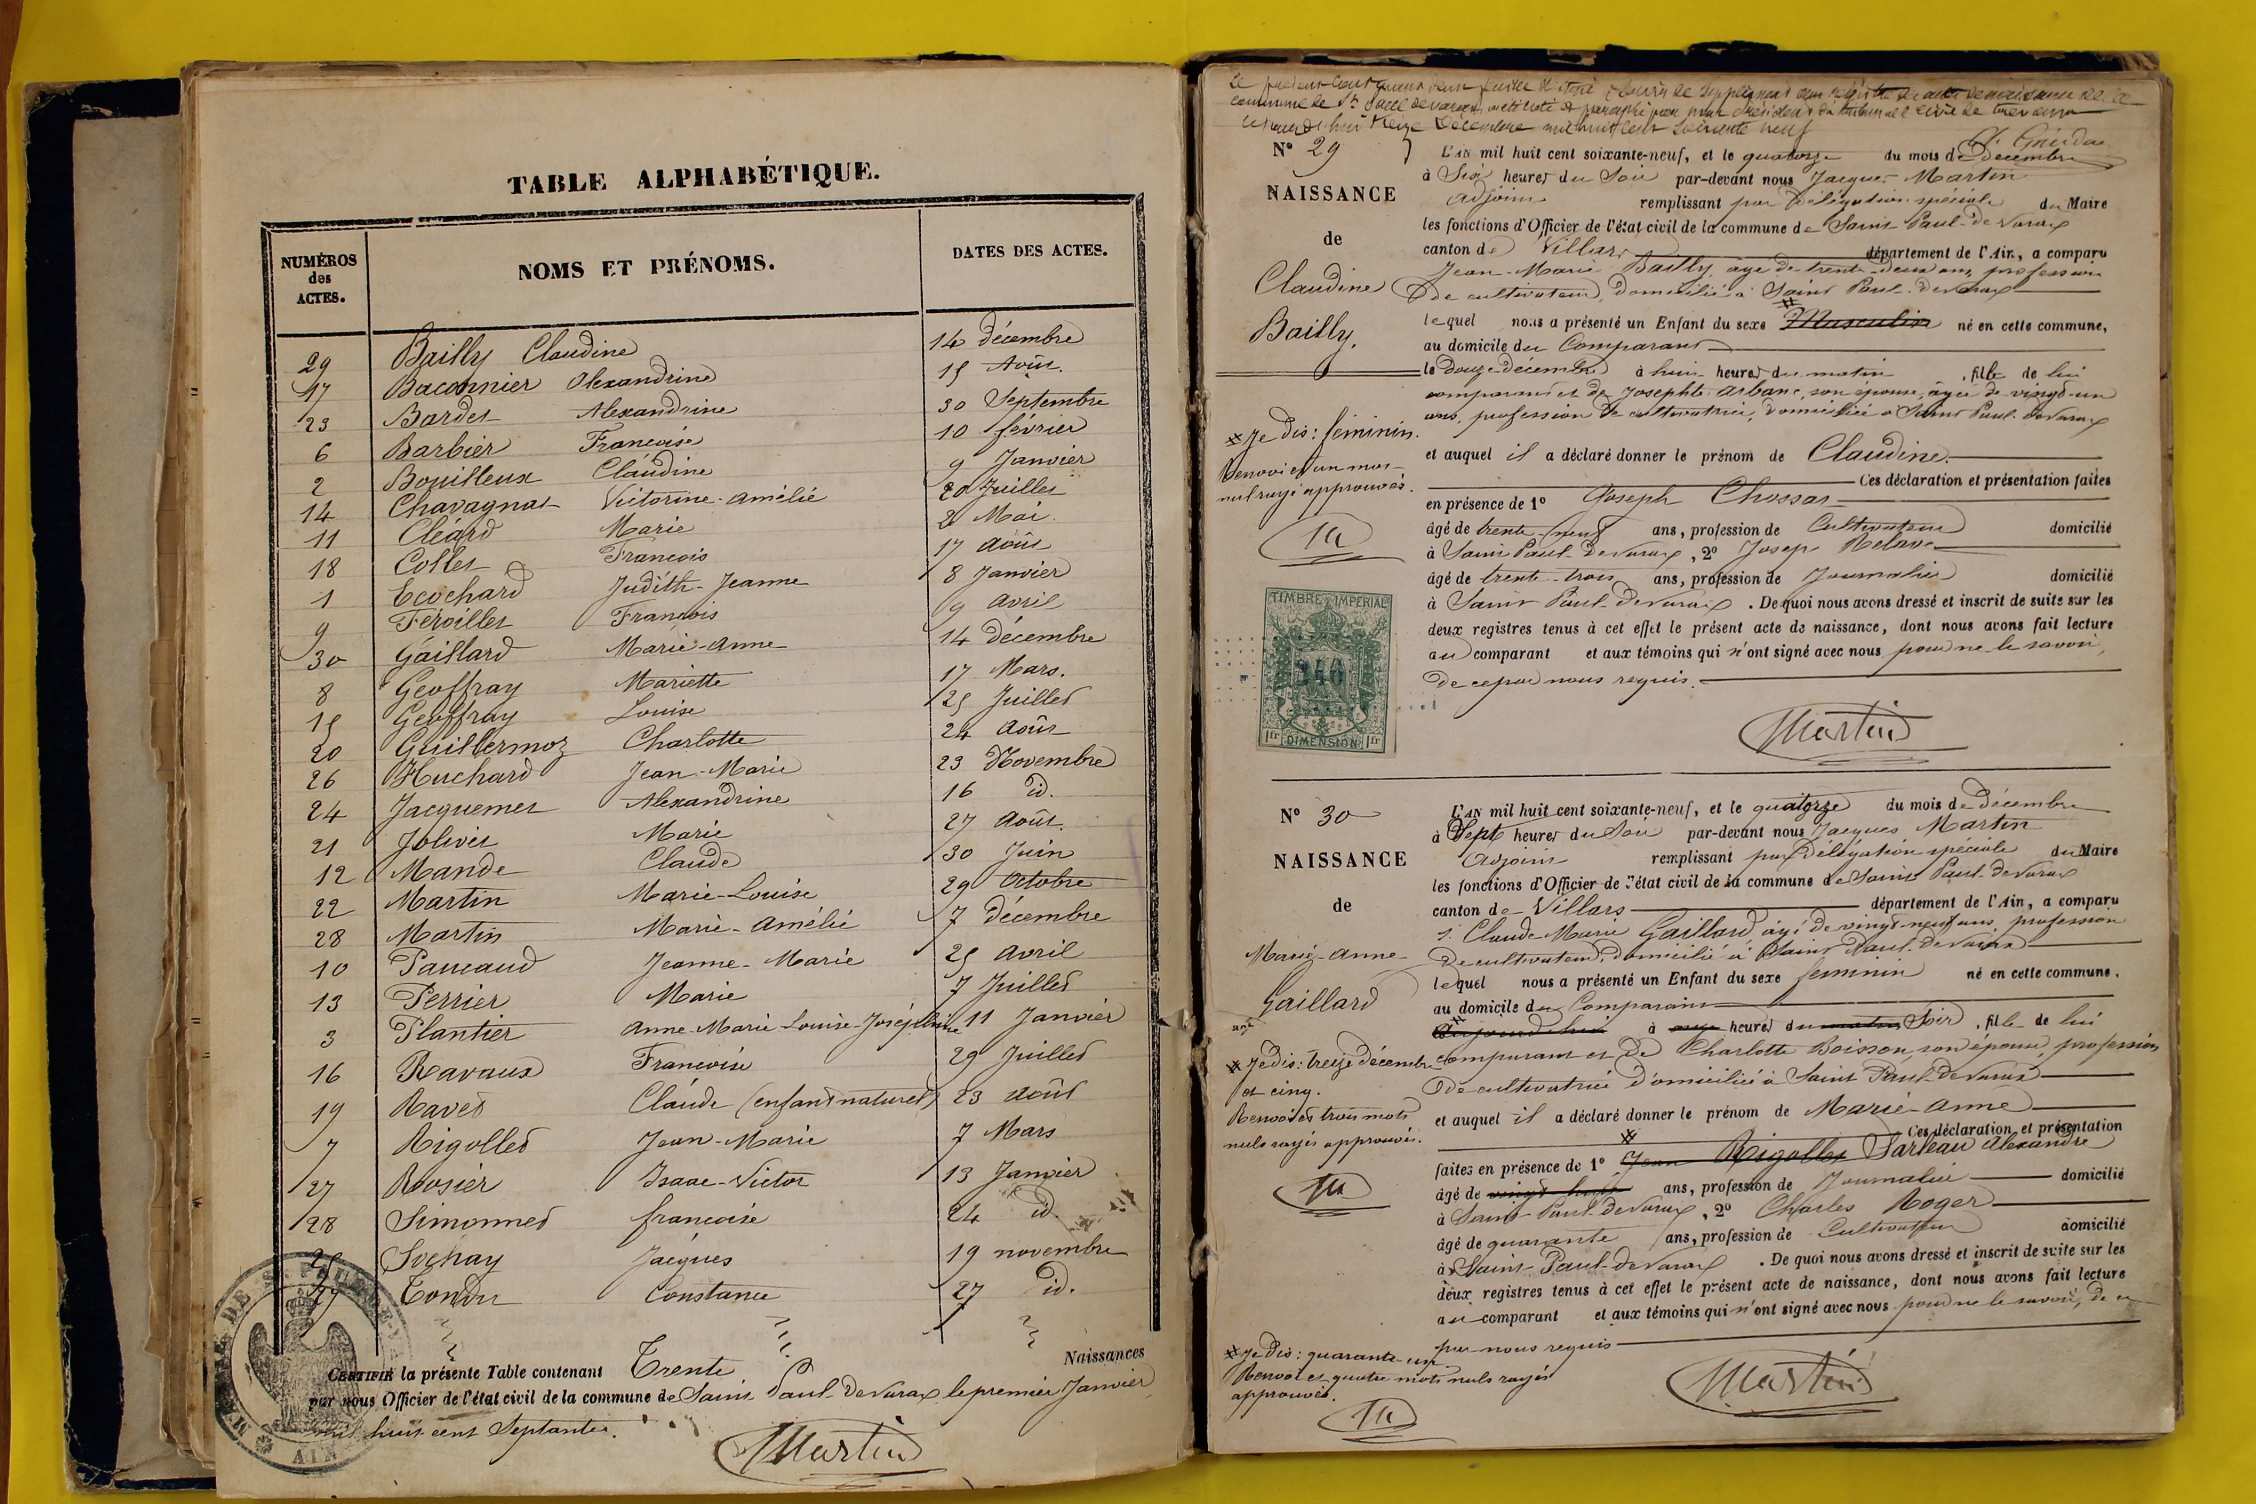 TABLE ALPHABÉTIQUE.
NUMÉROS des ACTES. NOMS ET PRÉNOMS. DATES DES ACTES.
29 Bailly Claudine 14 décembre
17 Baconnier Alexandrine 15 Août.
23 Bardet Alexandrine 30 Septembre
6 Barbier Françoise 10 février
2 Bouilleux Claudine 9 Janvier
14 Chavagnat Victorine-Amélie 20 Juillet
11 Cléard Marie 2 Mai.
18 Collet François 17 Août
1 Ecochard Judith-Jeanne 8 Janvier
9 Féroillet François 9 Avril
30 Gaillard Marie-Anne 14 décembre
8 Geoffray Mariette 17 Mars.
15 Geoffray Louise 25 Juillet
20 Guillermoz Charlotte 24 Août
26 Huchard Jean-Marie 23 Novembre
24 Jacquemet Alexandrine 16 id.
21 Jolivet Marie 27 Août.
12 Mande Claude 30 Juin
22 Martin Marie-Louise 29 Octobre
28 Martin Marie-Amélie 7 décembre
10 Paucaud Jeanne-Marie 25 Avril
13 Perrier Marie 7 Juillet
3 Plantier Anne-Marie-Louise-Joséphine 11 Janvier
16 Ravaux Françoise 29 Juillet
19 Ravet Claude (enfant naturel) 23 Août
7 Rigollet Jean-Marie 7 Mars
27 Rosier Isaac-Victor 13 Janvier
28 Simonnet françoise 24 id.
25 Sochay Jacques 19 novembre
27 Tondu Constance 27 id.
CERTIFIÉ la présente Table contenant Trente Naissances
par nous Officier de l'état civil de la commune de Saint Paul-de Varax le premier Janvier
mil huit cent Septante.
Martin
AIN
commune de St Paul de varax
Décembre mil huit cent soixante neuf
N° 29
NAISSANCE
de
Claudine
Bailly.
L'AN mil huit cent soixante-neuf, et le quatorze du mois de Décembre
à Six heures du Soir par-devant nous Jacques Martin
Adjoint remplissant par Délégation spéciale du Maire
les fonctions d'Officier de l'état civil de la commune de Saint Paul-de Varax
canton de Villars département de l'Ain, a comparu
Jean-Marie Bailly, âgé de trente-deux ans, profession
de cultivateur, domicilié à Saint Paul-de Varax
lequel nous a présenté un Enfant du sexe Masculin né en cette commune,
au domicile du Comparant
le Douze Décembre à huit heures du matin, fille de lui
comparant et de Josephte Arbanc, son épouse, âgée de vingt-un
ans, profession de cultivatrice, domiciliée à Saint Paul-de Varax
et auquel il a déclaré donner le prénom de Claudine.
Ces déclaration et présentation faites
en présence de 1° Joseph Chossat
âgé de trente-neuf ans, profession de Cultivateur domicilié
à Saint Paul-de Varax, 2° Josep Relave
âgé de trente-trois ans, profession de Journalier domicilié
à Saint Paul-de Varax. De quoi nous avons dressé et inscrit de suite sur les
deux registres tenus à cet effet le présent acte de naissance, dont nous avons fait lecture
au comparant et aux témoins qui n'ont signé avec nous pour ne le savoir,
de ce par nous requis.
Martin
Je dis: féminin.
Renvoi et un mot
nul rayé approuvés.
TIMBRE IMPÉRIAL
1fr DIMENSION 1fr
N° 30
NAISSANCE
de
Marie-Anne
Gaillard
L'AN mil huit cent soixante-neuf, et le quatorze du mois de Décembre
à Sept heures du Soir par-devant nous Jacques Martin
Adjoint remplissant par Délégation spéciale du Maire
les fonctions d'Officier de l'état civil de la commune de Saint Paul-de Varax
canton de Villars département de l'Ain, a comparu
Claude-Marie Gaillard âgé de vingt-neuf ans, profession
de cultivateur, domicilié à Saint Paul-de Varax
lequel nous a présenté un Enfant du sexe féminin né en cette commune,
au domicile du Comparant
Aujourd'hui à onze heures du matin Soir, fille de lui
comparant et de Charlotte Boisson, son épouse, profession
de cultivatrice domiciliée à Saint Paul-de Varax
et auquel il a déclaré donner le prénom de Marie-Anne
Ces déclaration et présentation
faites en présence de 1° Jean Rigollet Sarleau Alexandre
âgé de vingt huit ans, profession de Journalier domicilié
à Saint Paul-de Varax, 2° Charles Roger
âgé de quarante ans, profession de Cultivateur domicilié
à Saint Paul-de Varax. De quoi nous avons dressé et inscrit de suite sur les
deux registres tenus à cet effet le présent acte de naissance, dont nous avons fait lecture
au comparant et aux témoins qui n'ont signé avec nous pour ne le savoir, de ce
par nous requis
Martin
Je dis: treize décembre
et cinq.
Renvoi et trois mots
nuls rayés approuvés.
Je dis: quarante-un
Renvoi et quatre mots nuls rayés
approuvés.